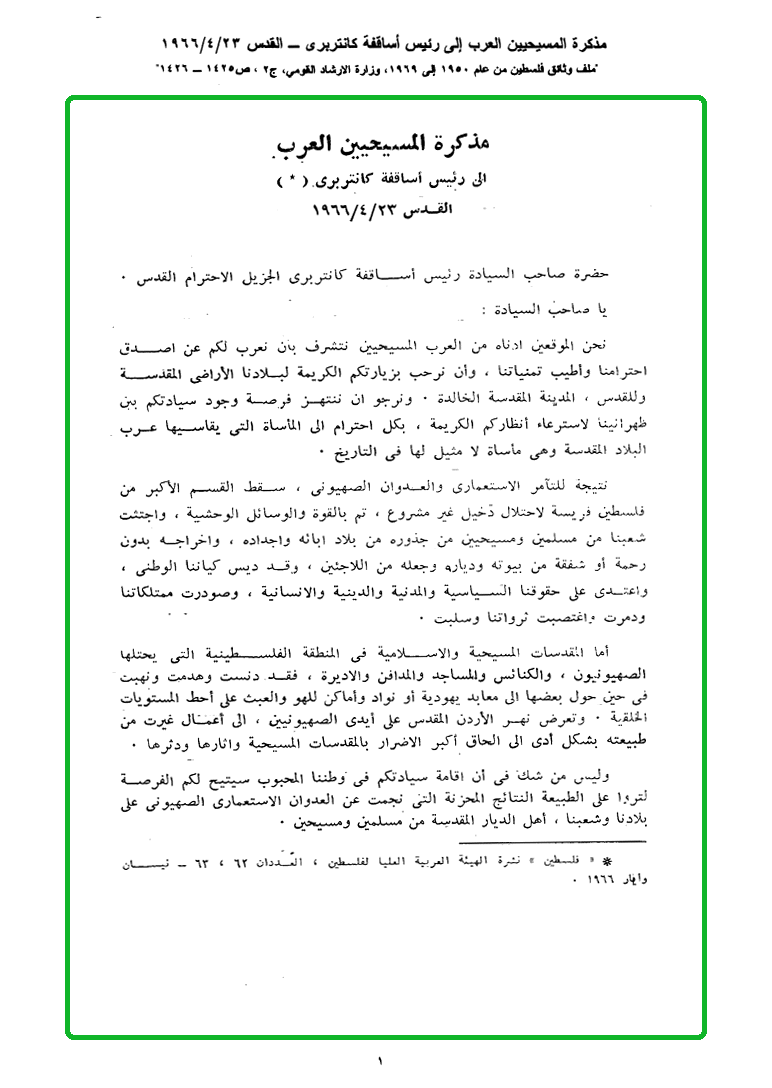 مذكرة المسيحيين العرب إلى رئيس أساقفة كانتربرى – القدس ١٩٦٦/٤/٢٣
"ملف وثائق فلسطين من عام ١٩٥٠ إلى ١٩٦٩، وزارة الارشاد القومي، ج٢ ، ص١٤٢٥ – ١٤٢٦"
مذكرة المسيحيين العرب
الى رئيس أساقفة كانتربرى ( * )
القـدس ١٩٦٦/٤/٢٣
حضرة صاحب السيادة رئيس أســاقفة كانتربرى الجزيل الاحترام القدس ٠
يا صاحب السيادة :
نحن الموقعين ادناه من العرب المسيحيين نتشرف بأن نعرب لكم عن اصــدق
احترامنا وأطيب تمنياتنا ، وأن نرحب بزيارتكم الكريمة لبلادنا الأراضى المقدســة
وللقدس ، المدينة المقدسة الخالدة ٠ ونرجو ان ننتهـز فرصـة وجود سيادتكم بين
ظهرانينا لاسترعاء أنظاركم الكريمة ، بكل احترام الى المأساة التى يقاسـيها عـرب
البلاد المقدسة وهى مأساة لا مثيل لها فى التاريخ ٠
نتيجة للتآمر الاستعمارى والعـدوان الصهيونى ، سـقط القسـم الأكبر من
فلسطين فريسة لاحتلال دخيل غير مشروع ، تم بالقوة والوسائل الوحشية ، واجتثت
شعبنا من مسلمين ومسيحيين من جذوره من بلاد ابائه واجداده ، واخراجـه بدون
رحمة أو شفقة من بيوته ودياره وجعله من اللاجئين ، وقـد ديس كياننا الوطنى ،
واعتـدى على حقوقنا السـياسية والمدنية والدينية والانسانية ، وصودرت ممتلكاتنا
ودمرت واغتصبت ثرواتنا وسلبت ٠
أما المقدسات المسيحية والاســلامية فى المنطقة الفلسـطينية التى يحتلها
الصهيونيون ، والكنائس والمساجد والمدافن والاديرة ، فقـد دنست وهدمت ونهبت
فى حين حول بعضها الى معابد يهودية أو نواد وأماكن للهو والعبث على أحط المستويات
الخلقية ٠ وتعرض نهـر الأردن المقدس على أيدى الصهيونيين ، الى أعمـال غيرت من
طبيعته بشكل أدى الى الحاق أكبر الاضرار بالمقدسات المسيحية واثارها ودثرها ٠
وليس من شك فى أن إقامة سيادتكم فى وطننا المحبوب سيتيح لكم الفرصـة
لتروا على الطبيعة النتائج المحزنة التى نجمت عن العدوان الاستعمارى الصهيونى على
بلادنا وشعبنا ، أهل الديار المقدسة من مسلمين ومسيحين ٠
* « فلسطين » نشرة الهيئة العربية العليا لفلسطين ، العددان ٦٢ ، ٦٣ – نيسـان
وايار ١٩٦٦ ٠
١